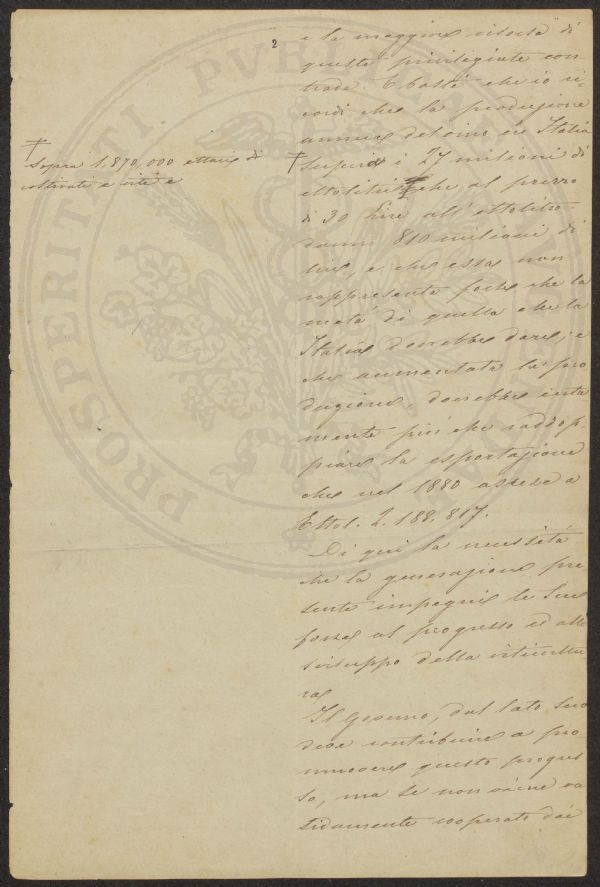 2
e la maggiore risorsa di
queste privilegiate con-
trade. E basti che io ri-
cordi che la produzione
annua del vino in Italia
† supera i 27 milioni di
ettolitri che al prezzo
di 30 lire all'ettolitro
danno 810 milioni di
lire, e che essa non
rappresenta forse che la
metà di quella che la
Italia dovrebbe dare; e
che aumentata la pro
duzione, dovrebbe certa
mente più che raddop
piare la esportazione
che nel 1880 ascese a
Ettol. 2.188.817.
Di qui la necessità
che la generazione pre
sente impegni le sue
forze al progresso ed allo
sviluppo della viticoltu-
ra
Il Governo, dal lato suo
deve contribuire a pro
muovere questo progres
so, ma se non viene va
lidamente cooperato dai
†
sopra 1.870,000 ettari di
coltivati a viti e
PROSPERITATI PVBLICAE